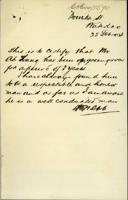 Bourke St
25 Feb 04
This is to certify that Mr
Ah has been a green grocer
for a period of 2 years
I have always found him
to be a respectable and honest
man and as far as I am aware
he is a well conducted man